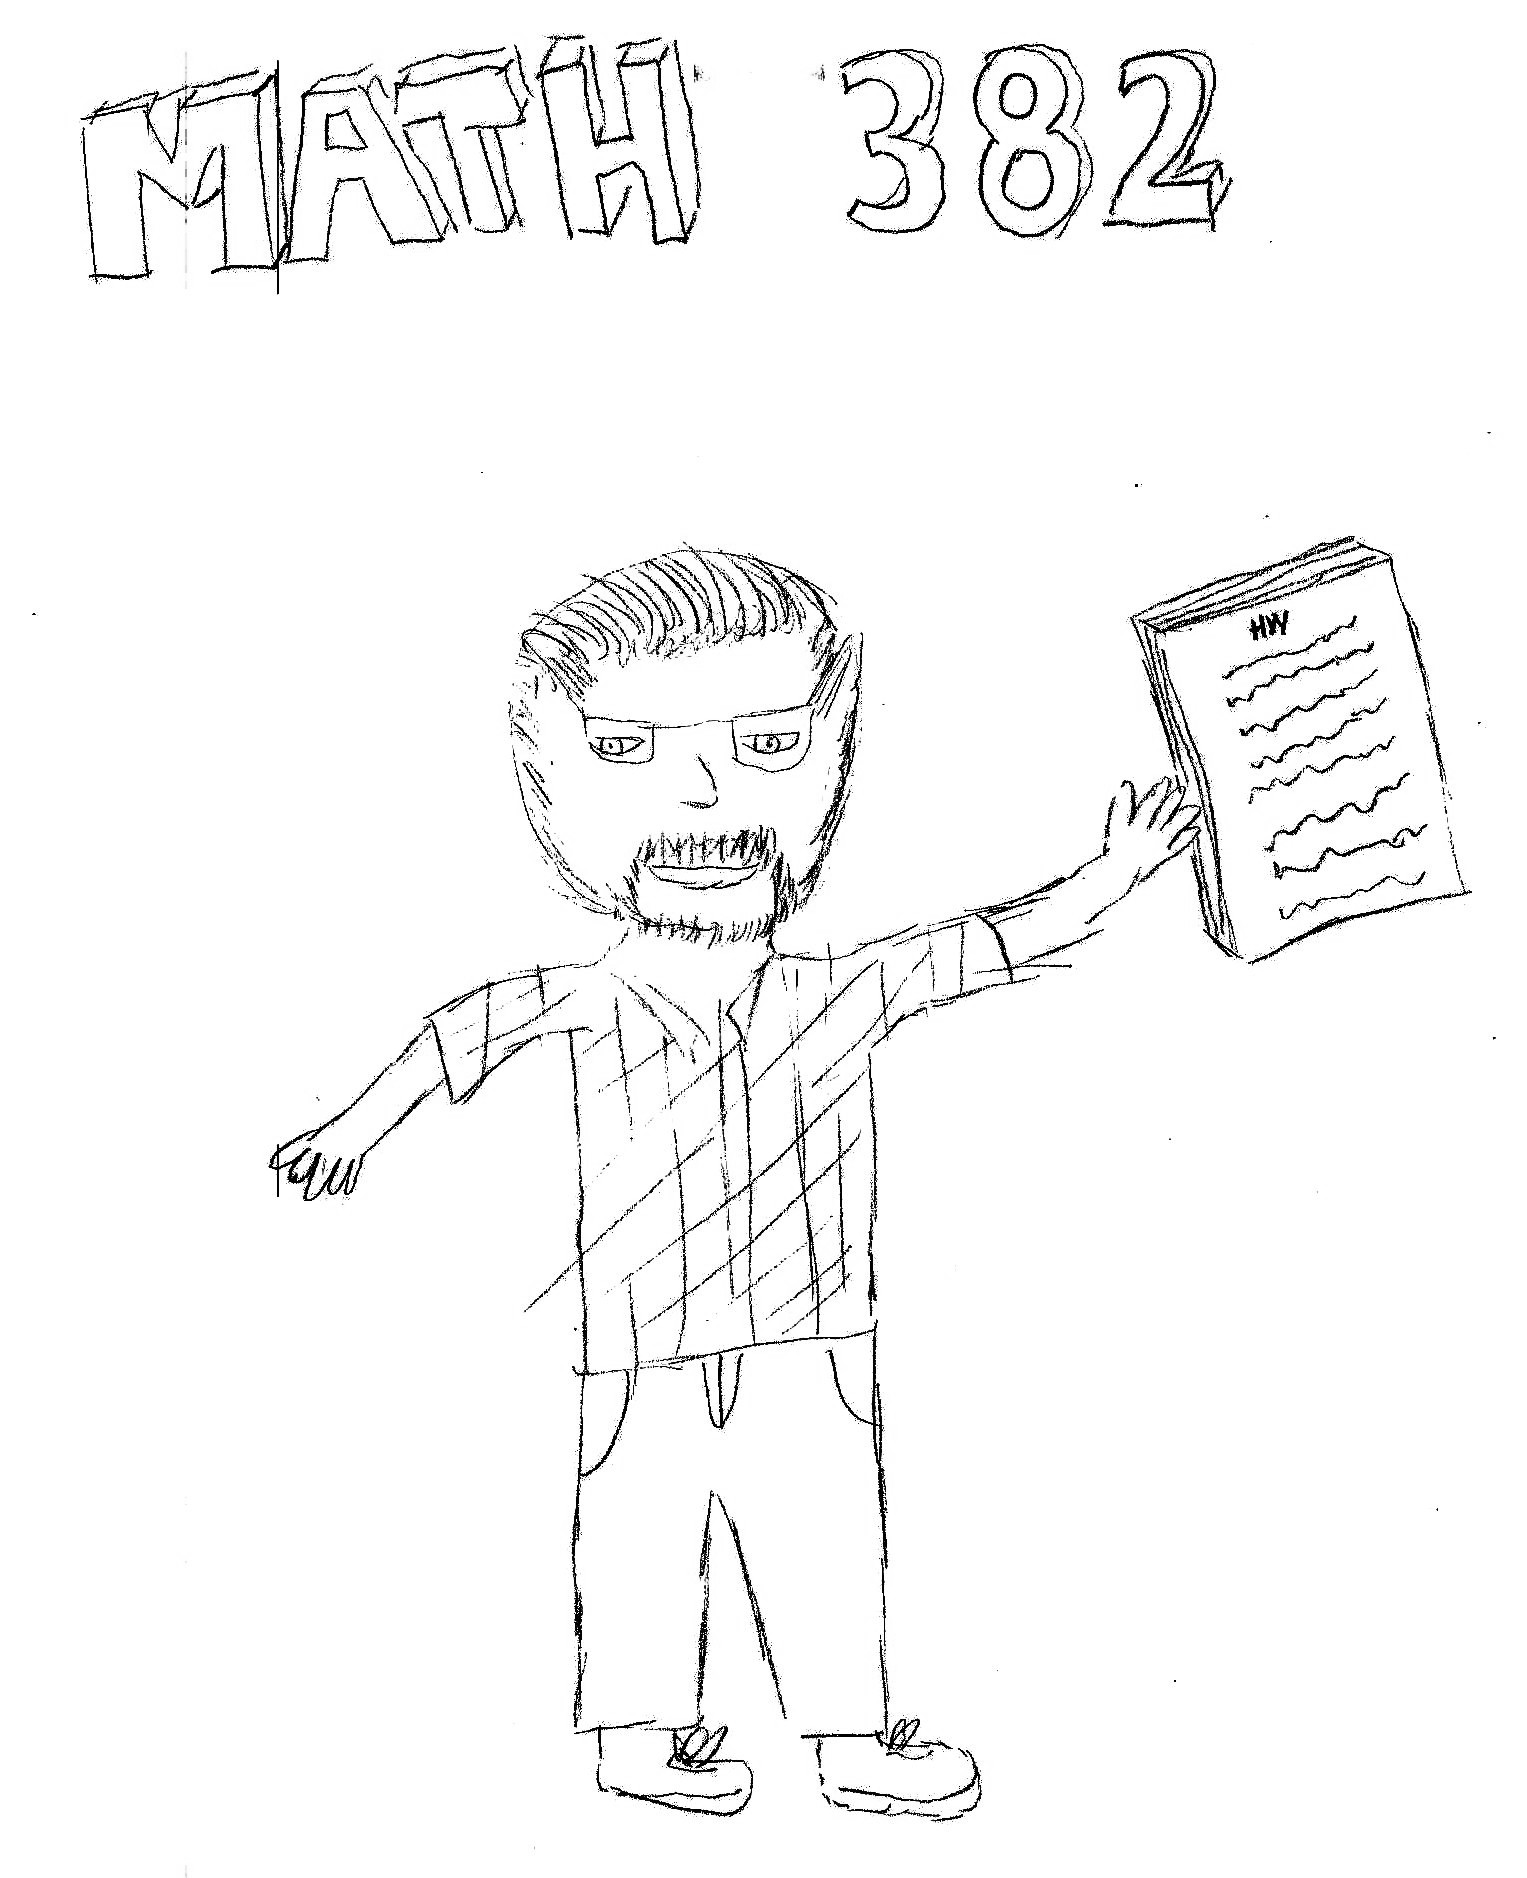 MATH 382
HW